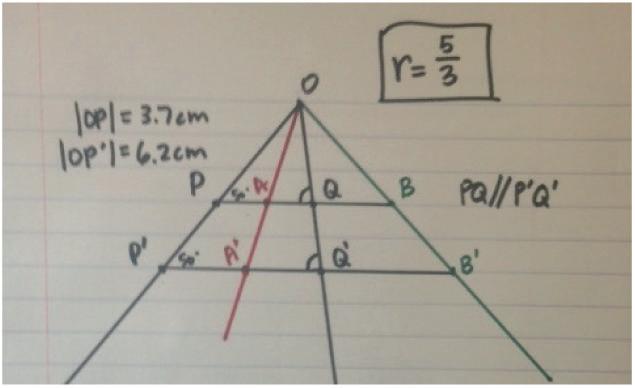 r = 5/3
O
|OP| = 3.7cm
|OP'| = 6.2cm
P 50° A Q B PQ//P'Q'
P' 50° A' Q' B'